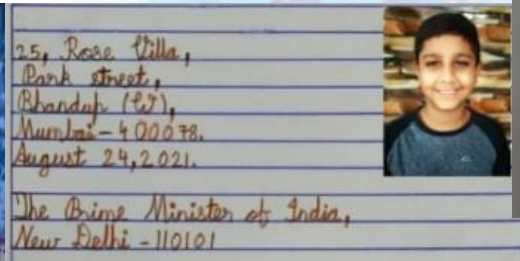 25, Rose Villa,
Park street,
Bhandup (W),
Mumbai - 400078.
August 24, 2021.
The Prime Minister of India,
New Delhi - 110101